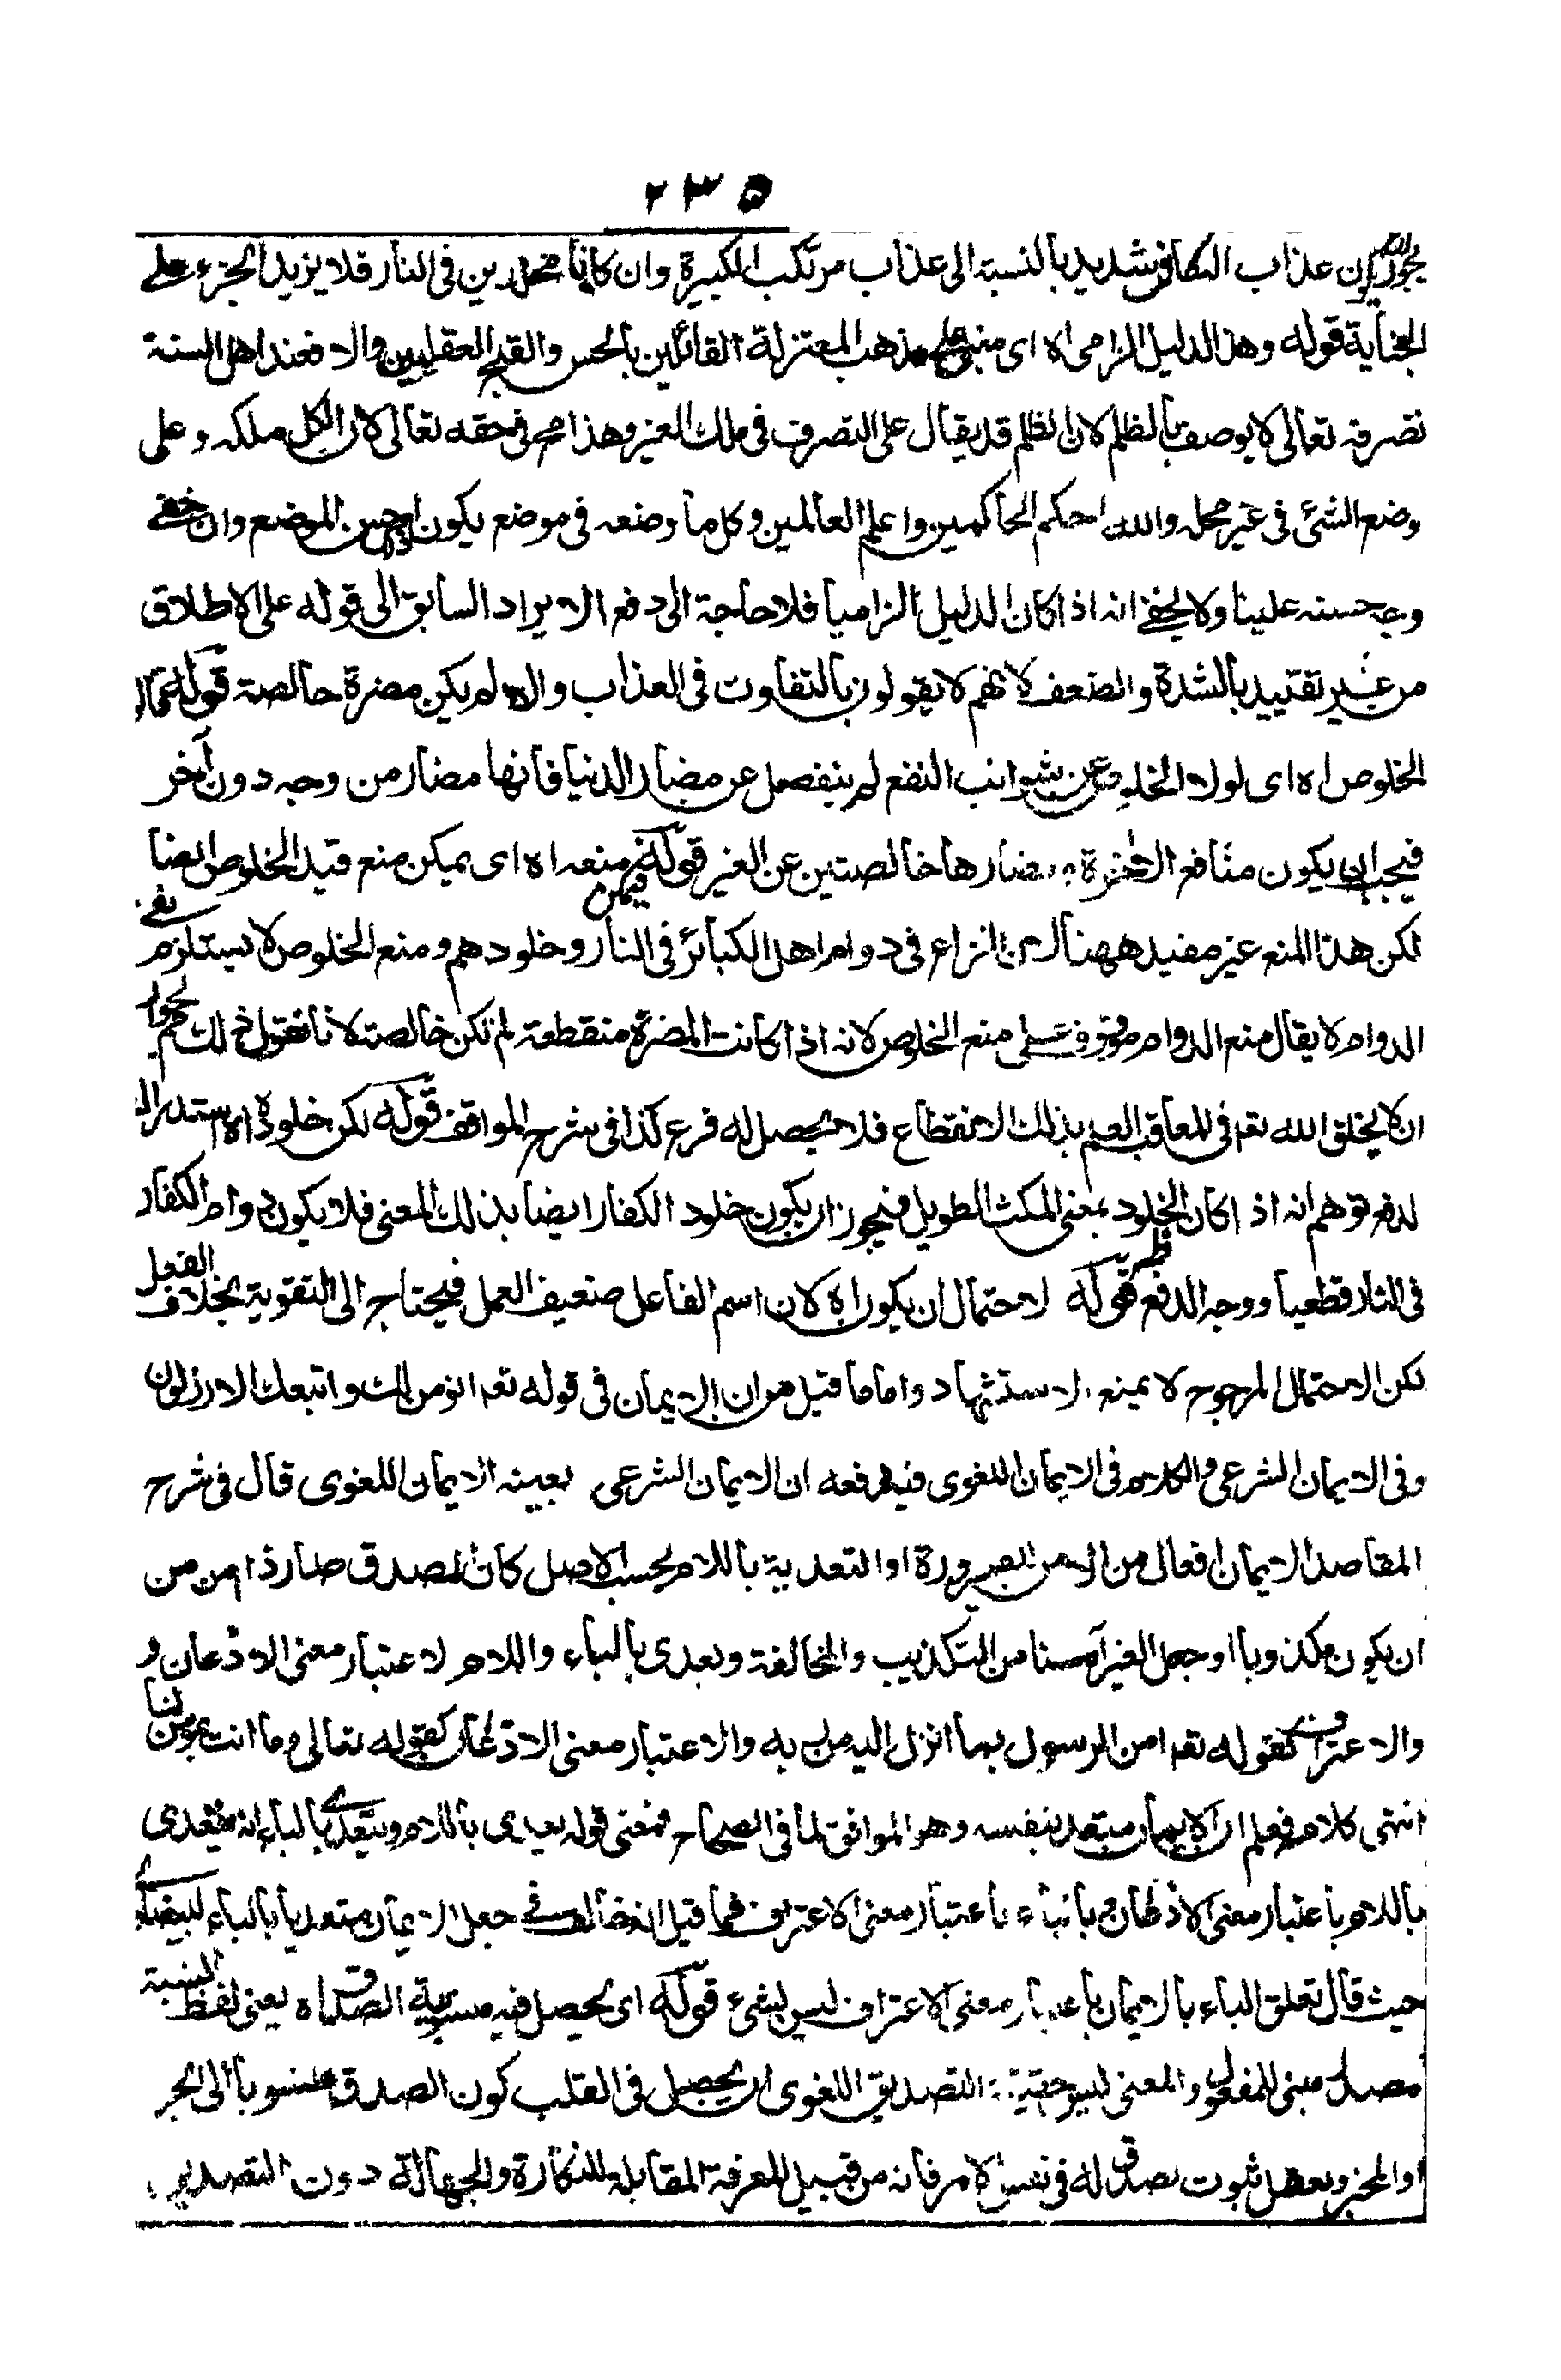 ٢٣٥
يجوز ان يكون عذاب الكافر شديدا بالنسبة الى عذاب مرتكب الكبيرة وان كانا مخلدين فى النار فلا يزيد الجزء على
الجناية قوله وهذا الدليل الزامى اه اى مبنى على مذهب المعتزلة القائلين بالحسن والقبح العقليين والا فعند اهل السنة
تصرفه تعالى لا يوصف بالظلم لان الظلم قد يقال على التصرف فى ملك الغير وهذا مح فى حقه تعالى لان الكل ملكه وعلى
وضع الشئ فى غير محله والله احكم الحاكمين واعلم العالمين وكل ما وضعه فى موضع يكون احسن المواضع وان خفى
وجه حسنه علينا ولا يخفى انه اذا كان الدليل الزاميا فلا حاجة الى دفع الايراد السابق الى قوله على الاطلاق
من غير تقييد بالشدة والضعف لانهم لا يقولون بالتفاوت فى العذاب والا لم يكن مضرة خالصة قوله
الخلوص اه اى لولا الخلوص عن شوائب النفع لم ينفصل عن مضار الدنيا فانها مضار من وجه دون آخر
فيجب ان يكون منافع الآخرة ومضارها خالصتين عن الغير قوله فيمكن منعه اه اى يمكن منع قيد الخلوص ايضا
لكن هذا المنع غير مفيد ههنا لان النزاع فى دوام اهل الكبائر فى النار وخلودهم ومنع الخلوص لا يستلزم نفى
الدوام لا يقال منع الدوام موقوف على منع الخلوص لانه اذا كانت المضرة منقطعة لم تكن خالصة لانا نقول ذلك مم لجواز
ان لا يخلق الله تعه فى المعاقب العلم بذلك الانقطاع فلا يحصل له فرع كذا فى شرح المواقف قوله لكن خلوده اه استدراك
لدفع توهم انه اذا كان الخلود بمعنى المكث الطويل فيجوز ان يكون خلود الكفار ايضا بذلك المعنى فلا يكون دوام الكفار
فى النار قطعيا ووجه الدفع ظ قوله لاحتمال ان يكون اه لان اسم الفاعل ضعيف العمل فيحتاج الى التقوية بخلاف الفعل
لكن الاحتمال المرجوح لا يمنع الاستشهاد واما ما قيل من ان الايمان فى قوله تعه انؤمن لك واتبعك الارذلون
وفى الايمان الشرعى والكلام فى الايمان اللغوى فيدفعه ان الايمان الشرعى بعينه الايمان اللغوى قال فى شرح
المقاصد الايمان افعال من الامن للصيرورة او التعدية باللام بحسب الاصل كان المصدق صار ذا امن من
ان يكون مكذوبا او جعل الغير آمنا من التكذيب والمخالفة ويعدى بالباء واللام لاعتبار معنى الاذعان و
والاعتراف كقوله تعه امن الرسول بما انزل اليه من ربه والاعتبار معنى الاذعان كقوله تعالى وما انت بمؤمن لنا
انتهى كلامه فعلم ان الايمان متعد بنفسه وهو الموافق لما فى الصحاح فمعنى قوله يعدى باللام ويتعدى بالباء انه يتعدى
باللام باعتبار معنى الاذعان وبالباء باعتبار معنى الاعتراف فما قيل انه خالف فى جعل الايمان متعديا بالباء
حيث قال تعلق الباء بالايمان باعتبار معنى الاعتراف ليس بشىء قوله اى يحصل فيه منسوبية الصدق اه يعنى لفظ النسبة
مصدر مبنى للمفعول والمعنى ليس حقيقة التصديق اللغوى ان يحصل فى القلب كون الصدق منسوبا الى الخبر
او المخبر ويعقل ثبوت صدق له فى نفس الامر فانه من قبيل المعرفة المقابلة للنكارة والجهالة دون التصديق